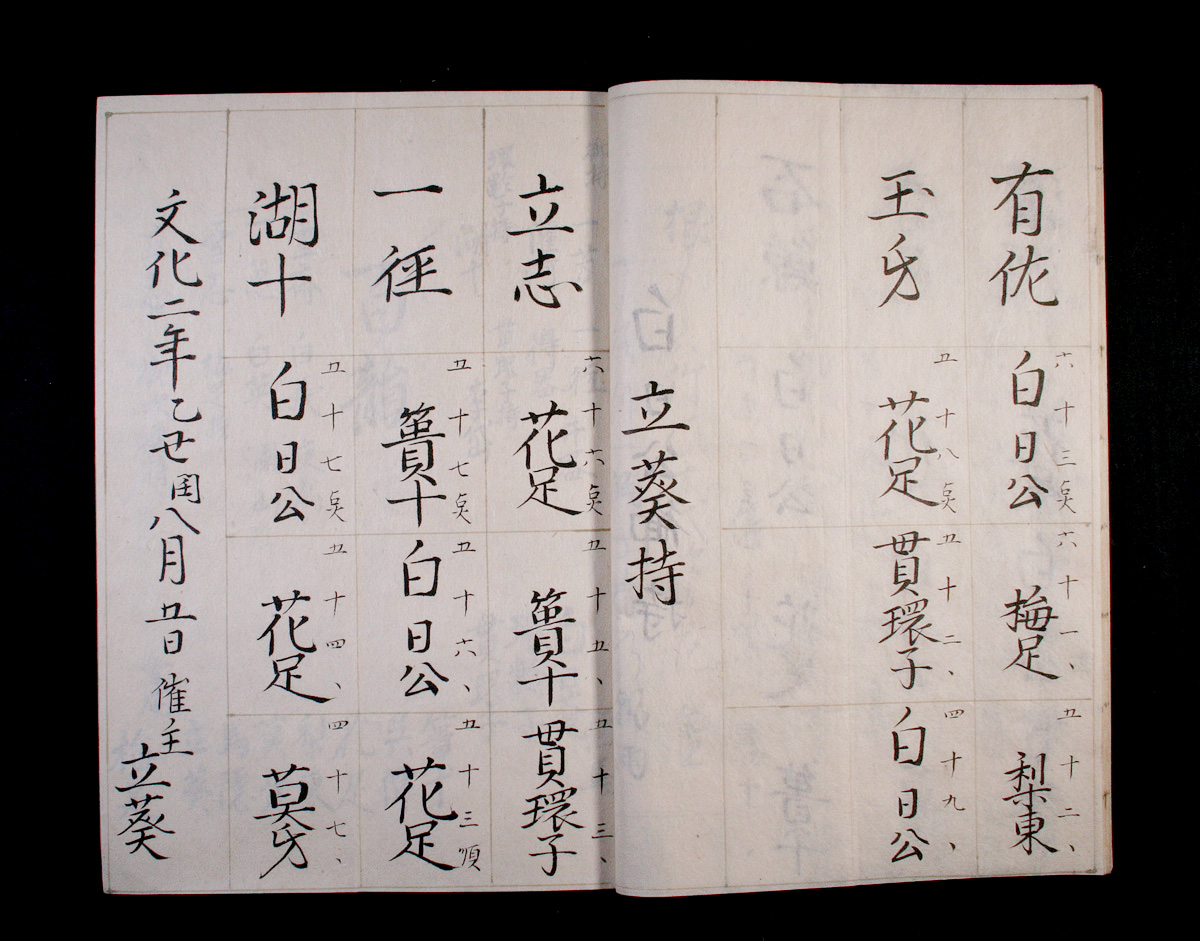 有佐
六十三点 白日公
六十一、 梅足
五十二、 梨東
玉身
五十八点 花足
五十二、 貫環子
四十九、 白日公
立葵持
立志
六十六点 花足
五十五、 簣十
五十三、 貫環子
一径
五十七点 簣十
五十六、 白日公
五十三順 花足
湖十
五十七点 白日公
五十四、 花足
四十七、
文化二年乙丑閏八月五日 催主 立葵